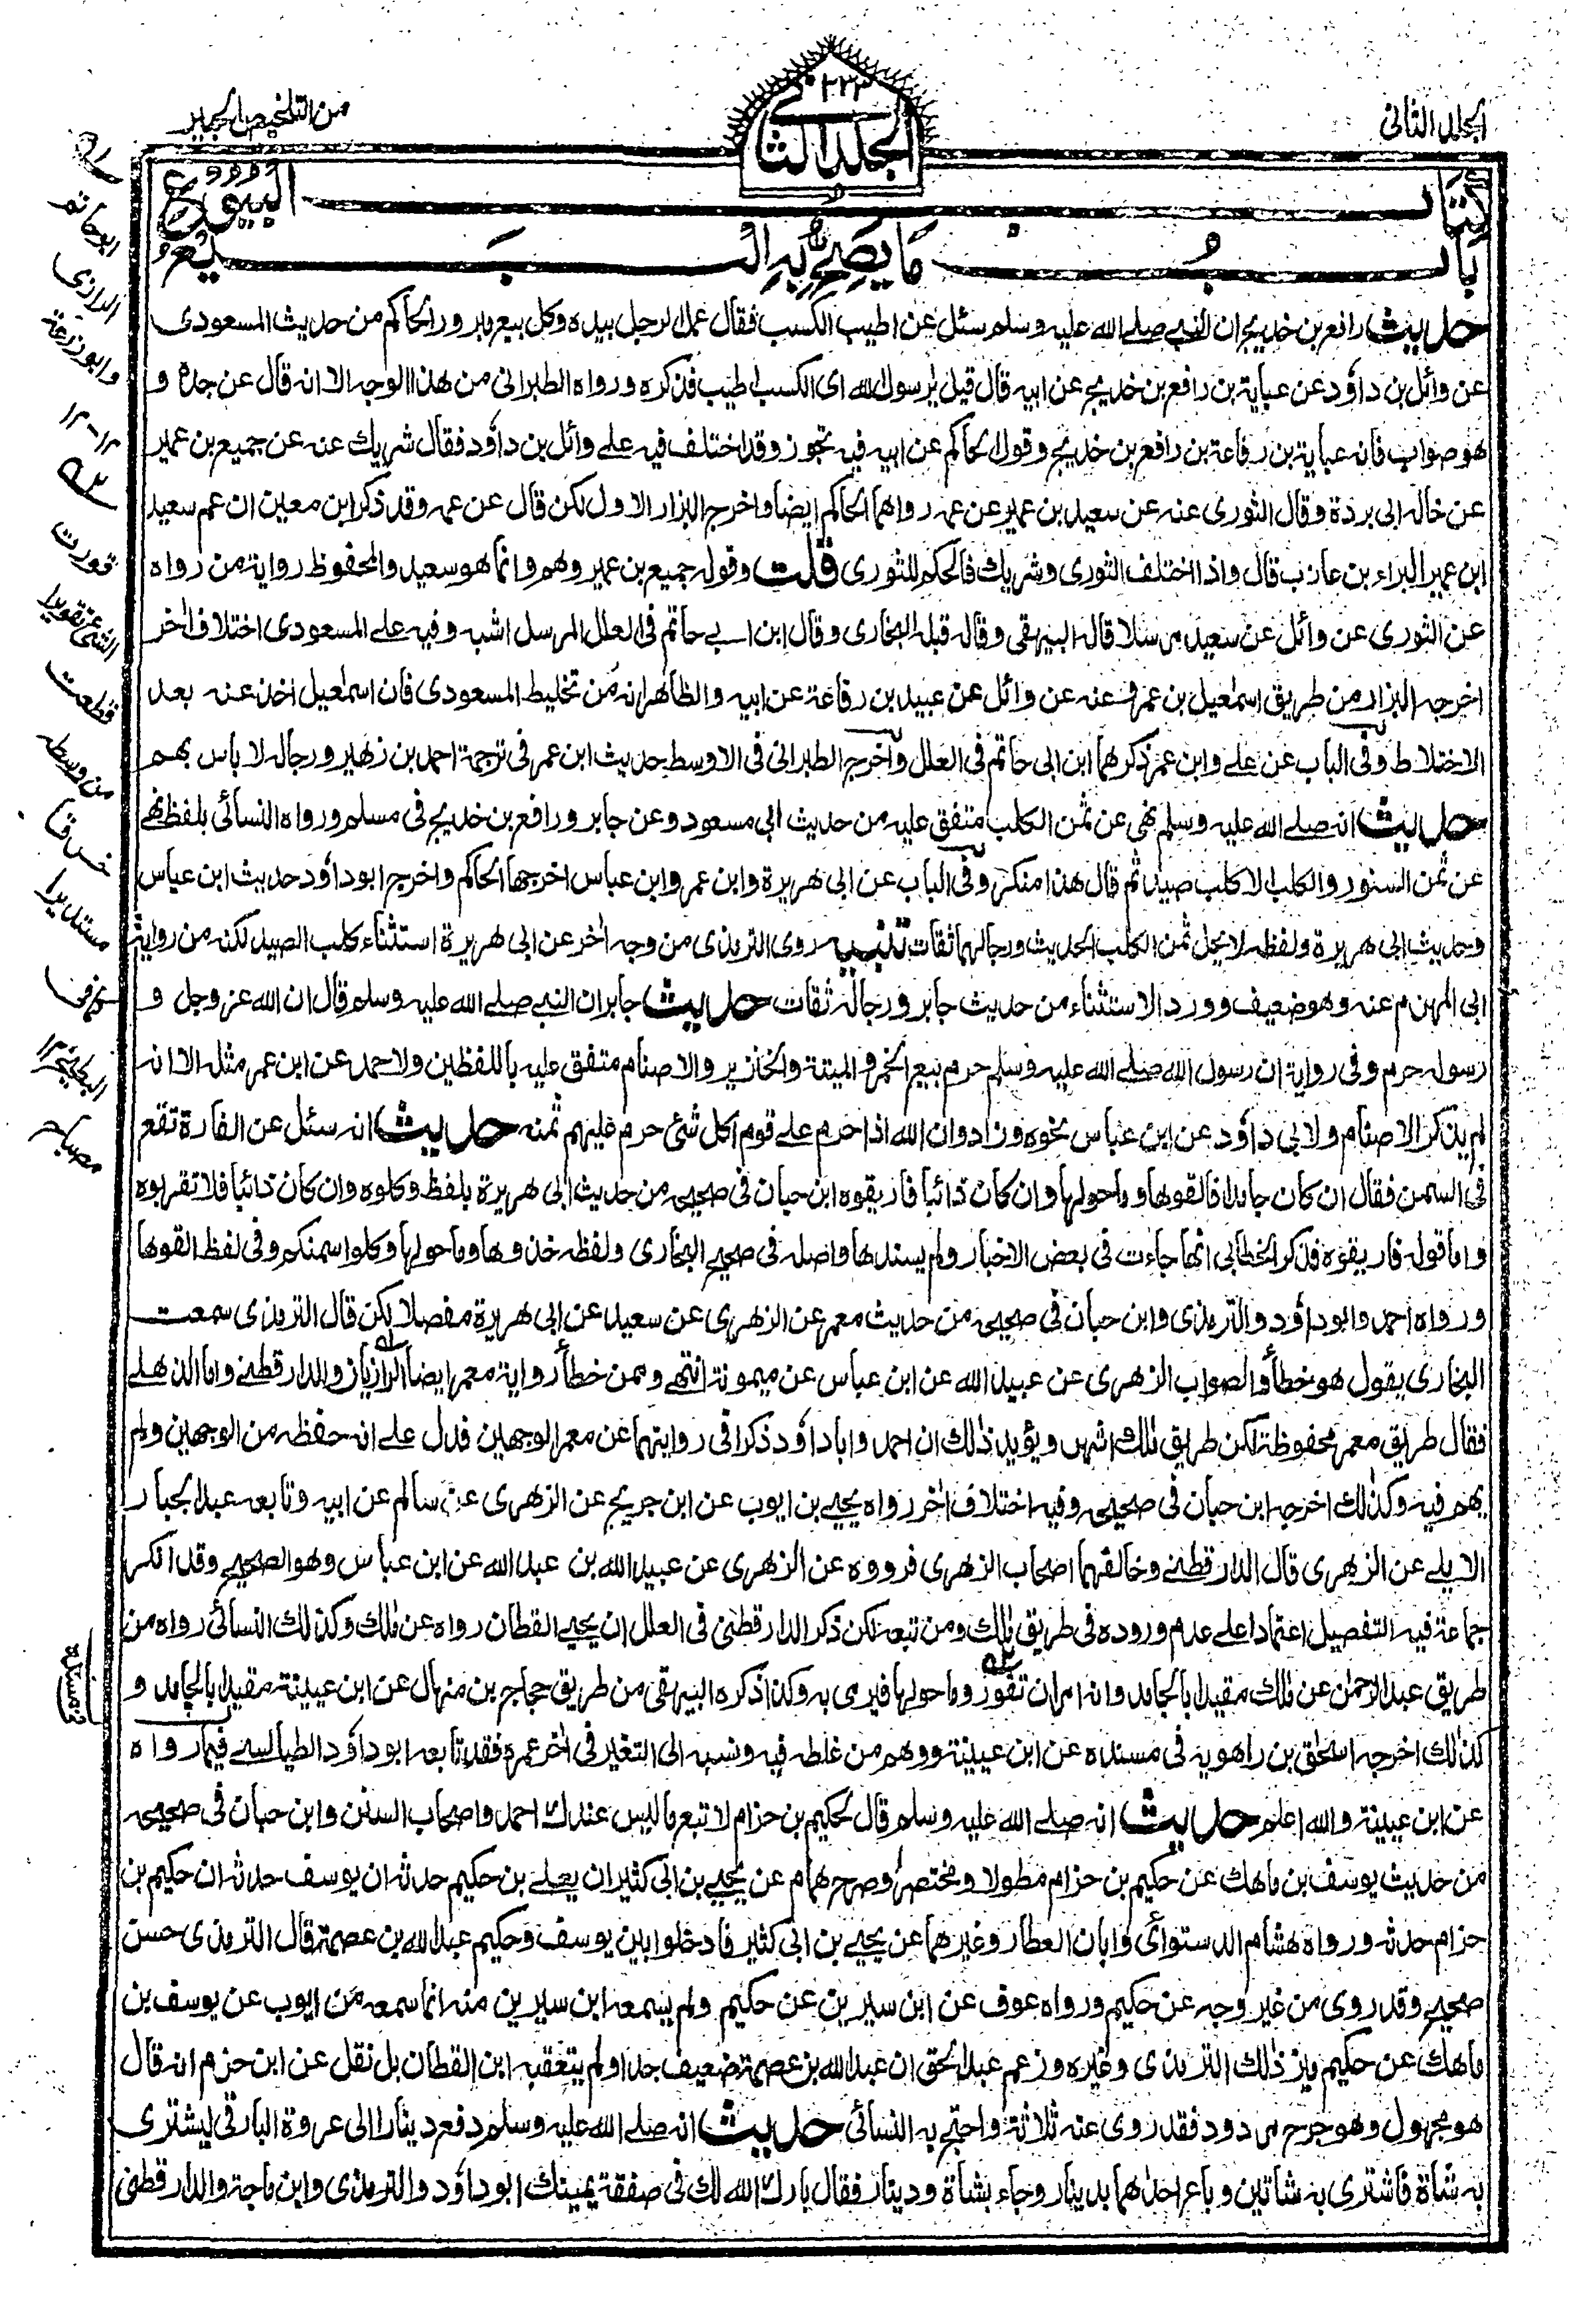 الجلد الثانى
٢٣٣
الجلد الثانى
من التلخيص الحبير
كتاب البيوع
باب ما يصح به البيع
حديث رافع بن خديج ان النبي صلے الله عليه وسلم سئل عن اطيب الكسب فقال عمل الرجل بيده وكل بيع مبرور الحاكم من حديث المسعودى
عن وائل بن داؤد عن عباية بن رافع بن خديج عن ابيه قال قيل يٰرسول الله اى الكسب اطيب فذكره ورواه الطبرانى من هذا الوجه الا انه قال عن جده و
هو صواب فانه عباية بن رفاعة بن رافع بن خديج وقول الحاكم عن ابيه فيه تجوز وقد اختلف فيه علے وائل بن داؤد فقال شريك عنه عن جميع بن عمير
عن خاله ابى بردة وقال الثورى عنه عن سعيد بن عمير عن عمه رواهما الحاكم ايضا واخرج البزار الاول لكن قال عن عمه وقد ذكر ابن معين ان عم سعيد
ابن عمير البراء بن عازب قال واذا اختلف الثورى وشريك فالحكم للثورى قلت وقوله جميع بن عمير وهم وانما هو سعيد والمحفوظ رواية من رواه
عن الثورى عن وائل عن سعيد مرسلا قاله البيهقى وقاله قبله البخارى وقال ابن ابے حاتم فى العلل المرسل اشبه وفيه علے المسعودى اختلاف اٰخر
اخرجه البزار من طريق اسمٰعيل بن عمر عنه عن وائل عن عبيد بن رفاعة عن ابيه والظاهر انه من تخليط المسعودى فان اسمٰعيل اخذ عنه بعد
الاختلاط وفى الباب عن علے وابن عمر ذكرهما ابن ابى حاتم فى العلل واخرج الطبرانى فى الاوسط حديث ابن عمر فى ترجمة احمد بن زهير ورجاله لا باس بهم
حديث انه صلے الله عليه وسلم نهى عن ثمن الكلب متفق عليه من حديث ابى مسعود وعن جابر ورافع بن خديج فى مسلم ورواه النسائى بلفظ نهے
عن ثمن السنور والكلب الا كلب صيد ثم قال هذا منكر وفى الباب عن ابى هريرة وابن عمر وابن عباس اخرجها الحاكم واخرج ابو داؤد حديث ابن عباس
وحديث ابى هريرة ولفظه لا يحل ثمن الكلب الحديث ورجالهما ثقات تنبيه روى الترمذى من وجه اٰخر عن ابى هريرة استثناء كلب الصيد لكنه من رواية
ابى المهزم عنه وهو ضعيف وورد الاستثناء من حديث جابر ورجاله ثقات حديث جابر ان النبے صلے الله عليه وسلم قال ان الله عز وجل و
رسوله حرم وفى رواية ان رسول الله صلے الله عليه وسلم حرم بيع الخمر والميتة والخنزير والاصنام متفق عليه باللفظين ولاحمد عن ابن عمر مثله الا انه
لم يذكر الاصنام ولابى داؤد عن ابن عباس نحوه وزاد وان الله اذا حرم علے قوم اكل شئ حرم عليهم ثمنه حديث انه سئل عن الفارة تقع
فى السمن فقال ان كان جامدا فالقوها وما حولها وان كان ذائبا فاريقوه ابن حبان فى صحيحه من حديث ابى هريرة بلفظ وكلوه وان كان ذائبا فلا تقربوه
واما قوله فاريقوه فذكر الخطابى انها جاءت فى بعض الاخبار ولم يسندها واصله فى صحيح البخارى ولفظه خذوها وما حولها وكلوا سمنكم وفى لفظ القوها
ورواه احمد وابو داؤد والترمذى وابن حبان فى صحيحه من حديث معمر عن الزهرى عن سعيد عن ابى هريرة مفصلا لكن قال الترمذى سمعت
البخارى يقول هو خطأ والصواب الزهرى عن عبيد الله عن ابن عباس عن ميمونة انتهے وممن خطأ رواية معمر ايضا الرازيان والدارقطنے واما الذهلے
فقال طريق معمر محفوظة لكن طريق مٰلك اشهر ويؤيد ذٰلك ان احمد وابا داؤد ذكرا فى روايتهما عن معمر الوجهين فدل علے انه حفظه من الوجهين ولم
يهم فيه وكذٰلك اخرجه ابن حبان فى صحيحه وفيه اختلاف اٰخر رواه يحيے بن ايوب عن ابن جريج عن الزهرى عن سالم عن ابيه وتابعه عبد الجبار
الايلے عن الزهرى قال الدارقطنے وخالفهما اصحاب الزهرى فرووه عن الزهرى عن عبيد الله بن عبد الله عن ابن عباس وهو الصحيح وقد انكر
جماعة فيه التفصيل اعتمادا علے عدم وروده فى طريق مٰلك ومن تبعه لكن ذكر الدارقطنى فى العلل ان يحيے القطان رواه عن مٰلك وكذٰلك النسائى رواه من
طريق عبد الرحمٰن عن مٰلك مقيدا بالجامد وانه امر ان تقور وما حولها فيرمى به وكذا ذكره البيهقى من طريق حجاج بن منهال عن ابن عيينة مقيدا بالجامد و
كذٰلك اخرجه اسحٰق بن راهويه فى مسنده عن ابن عيينة ووهم من غلطه فيه ونسبه الى التغير فى اٰخر عمره فقد تابعه ابو داؤد الطيالسے فيما رواه
عن ابن عيينة والله اعلم حديث انه صلے الله عليه وسلم قال لحكيم بن حزام لا تبع ما ليس عندك احمد واصحاب السنن وابن حبان فى صحيحه
من حديث يوسف بن ماهك عن حكيم بن حزام مطولا ومختصرا وصرح همام عن يحيے بن ابى كثير ان يعلے بن حكيم حدثه ان يوسف حدثه ان حكيم بن
حزام حدثه ورواه هشام الدستوائى وابان العطار وغيرهما عن يحيے بن ابى كثير فادخلوا بين يوسف وحكيم عبد الله بن عصمة قال الترمذى حسن
صحيح وقد روى من غير وجه عن حكيم ورواه عوف عن ابن سيرين عن حكيم ولم يسمعه ابن سيرين منه انما سمعه من ايوب عن يوسف بن
ماهك عن حكيم ميز ذٰلك الترمذى وغيره وزعم عبد الحق ان عبد الله بن عصمة ضعيف جدا ولم يتعقبه ابن القطان بل نقل عن ابن حزم انه قال
هو مجهول وهو جرح مردود فقد روى عنه ثلاثة واحتج به النسائى حديث انه صلے الله عليه وسلم دفع دينارا الى عروة البارقى ليشترى
به شاة فاشترى به شاتين وباع احدٰهما بدينار وجاء بشاة ودينار فقال بارك الله لك فى صفقة يمينك ابو داؤد والترمذى وابن ماجة والدارقطنى
ابو حاتم
الرازى
وابو زرعة
١٢-١٢
قورت
الشئ تقويرا
قطعت
من وسطه
خرقا
مستديرا
كما فى
البطيخ ١٢
مصباح
فى مسنده